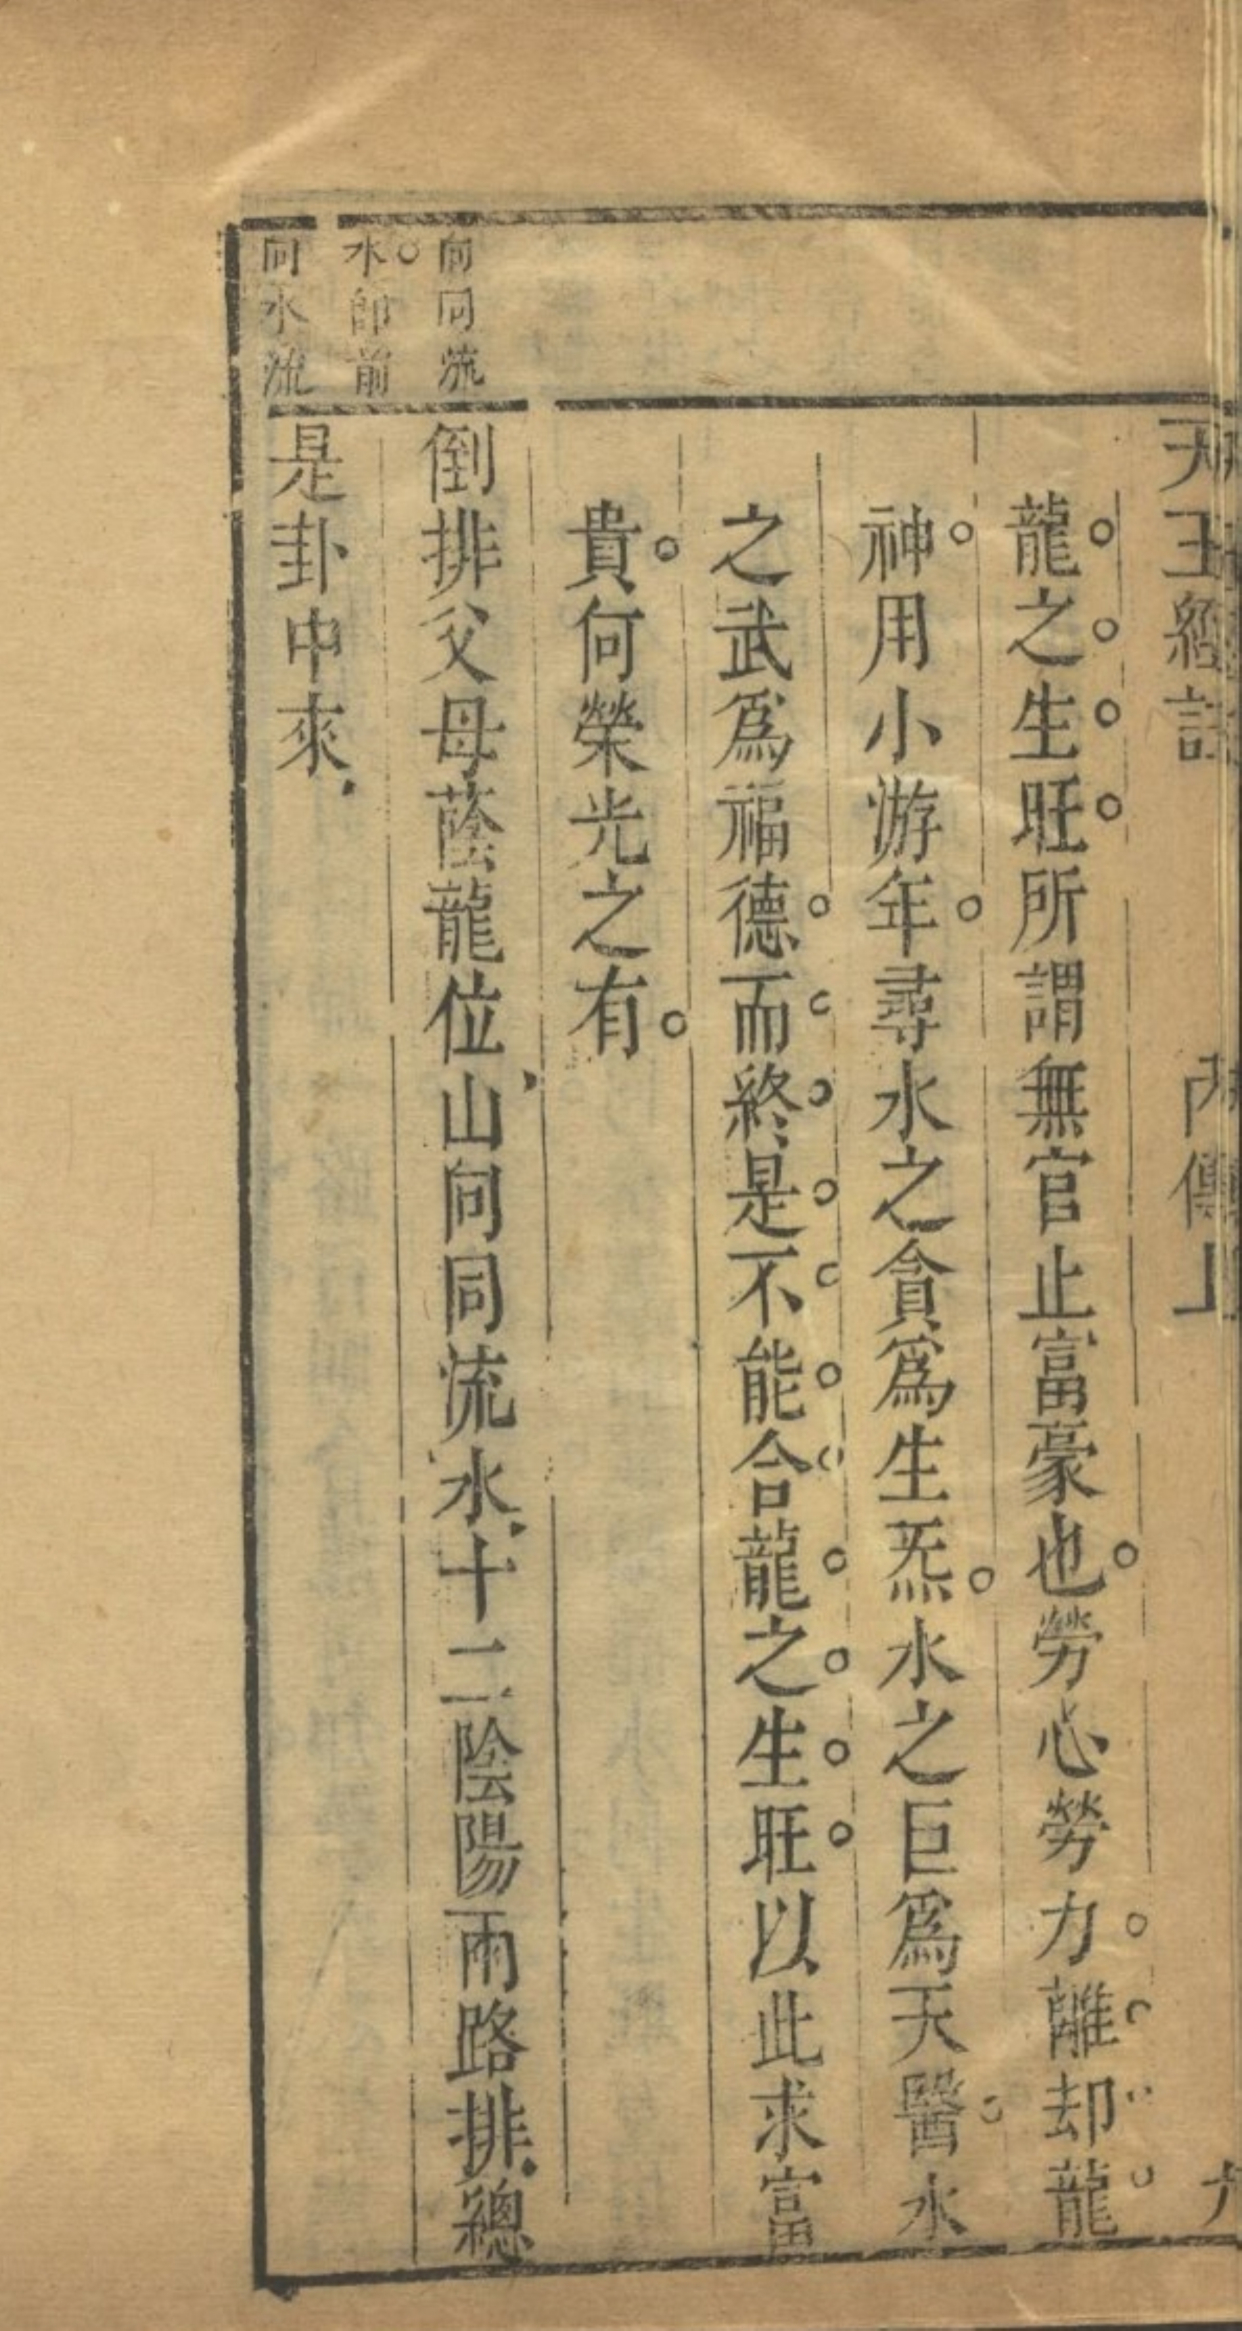 天玉經註 內傳上 九
龍之生旺所謂無官止富豪也勞心勞力離却龍
神用小游年尋水之貪爲生炁水之巨爲天醫水
之武爲福德而終是不能合龍之生旺以此求富
貴何榮光之有
向同流
水卽前
向水流
倒排父母蔭龍位山向同流水十二陰陽兩路排總
是卦中來